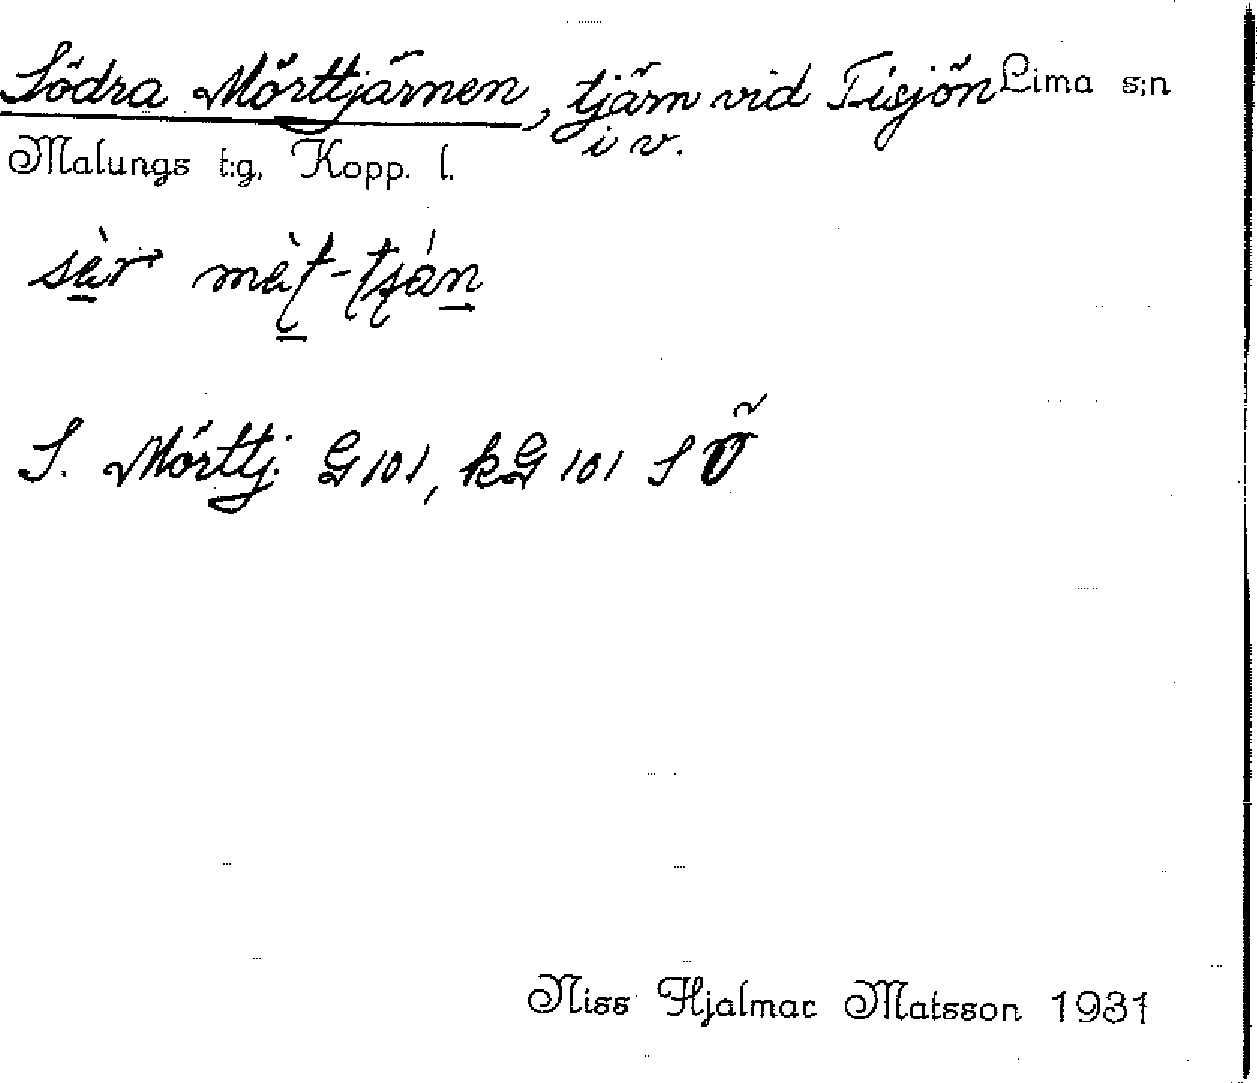 Södra Mörttjärnen, tjärn vid Tisjön Lima s:n
i v.
Malungs t:g. Kopp. l.
S. Mörttj. G 101, kG 101 S
Niss Hjalmar Matsson 1931